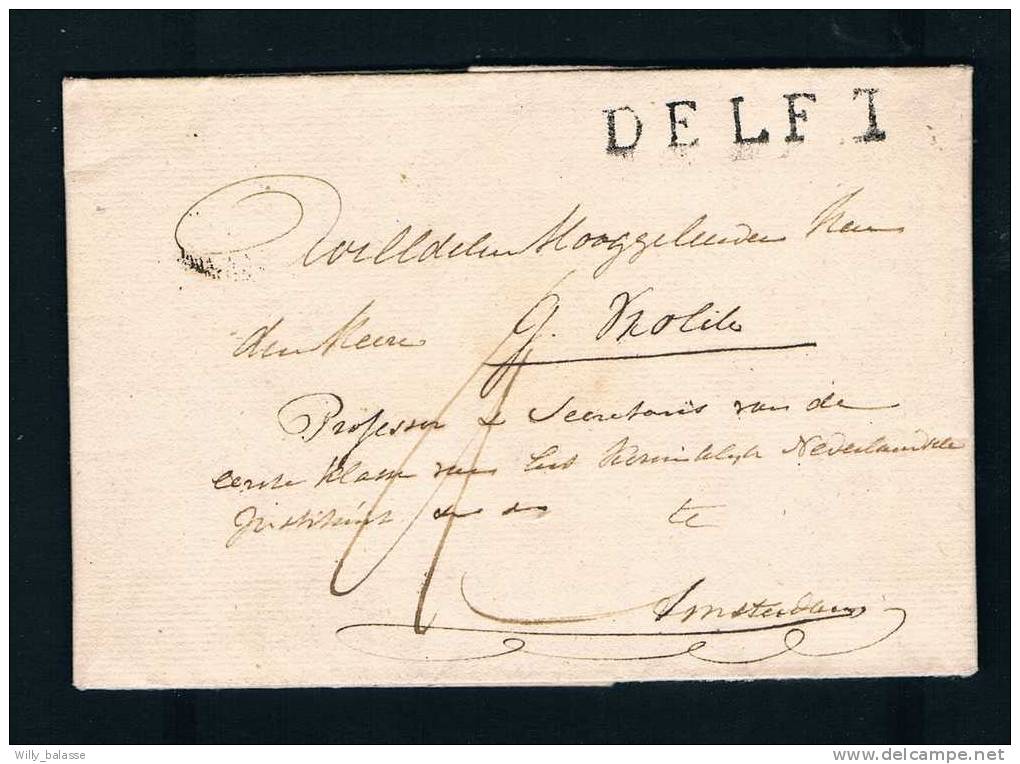 DELFT
Hooggeleerden Heer
den Heere G. Vrolik
Professor & Secretaris van de
eerste Klasse van het Koninklijk Nederlandsche
Instituut &c &c te
Amsterdam
Willy_balasse
www.delcampe.net